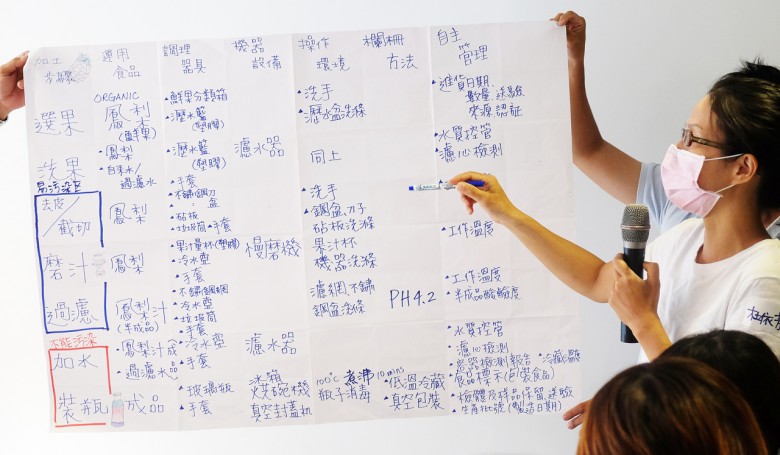 加工
步驟
運用
食品
調理
器具
機器
設備
操作
環境
欄柵
方法
自主
管理
選果
ORGANIC
鳳梨
(鮮果)
鮮果分類箱
瀝水籃
(塑膠)
洗手
瀝水盆洗滌
進貨日期.
數量.送驗
來源認証
洗果
鳳梨
自來水/
過濾水
瀝水籃
(塑膠)
手套
濾水器
同上
水質控管
濾心檢測
易污染區
去皮/
截切
鳳梨
不鏽鋼刀
盆
砧板
垃圾筒 手套
洗手
鋼盆.刀子
砧板洗滌
工作溫度
磨汁
鳳梨
果汁量杯(塑膠)
冷水壺
手套
慢磨機
果汁杯
機器洗滌
過濾
鳳梨汁
(半成品)
不鏽鋼網
冷水壺
垃圾筒
手套
濾網.不鏽
鋼盆洗滌
PH4.2
工作溫度
半成品酸鹼度
不能污染
加水
鳳梨汁成
過濾水品
冷水壺
手套
濾水器
水質控管
濾心檢測
裝瓶
成品
玻璃瓶
手套
冰箱
烘碗機
真空封蓋机
100℃煮沸10mins
瓶子消毒
低溫冷藏
真空包裝
食品標示(包裝食品)
檢體及樣品保留.送驗
生產批號(製造日期)